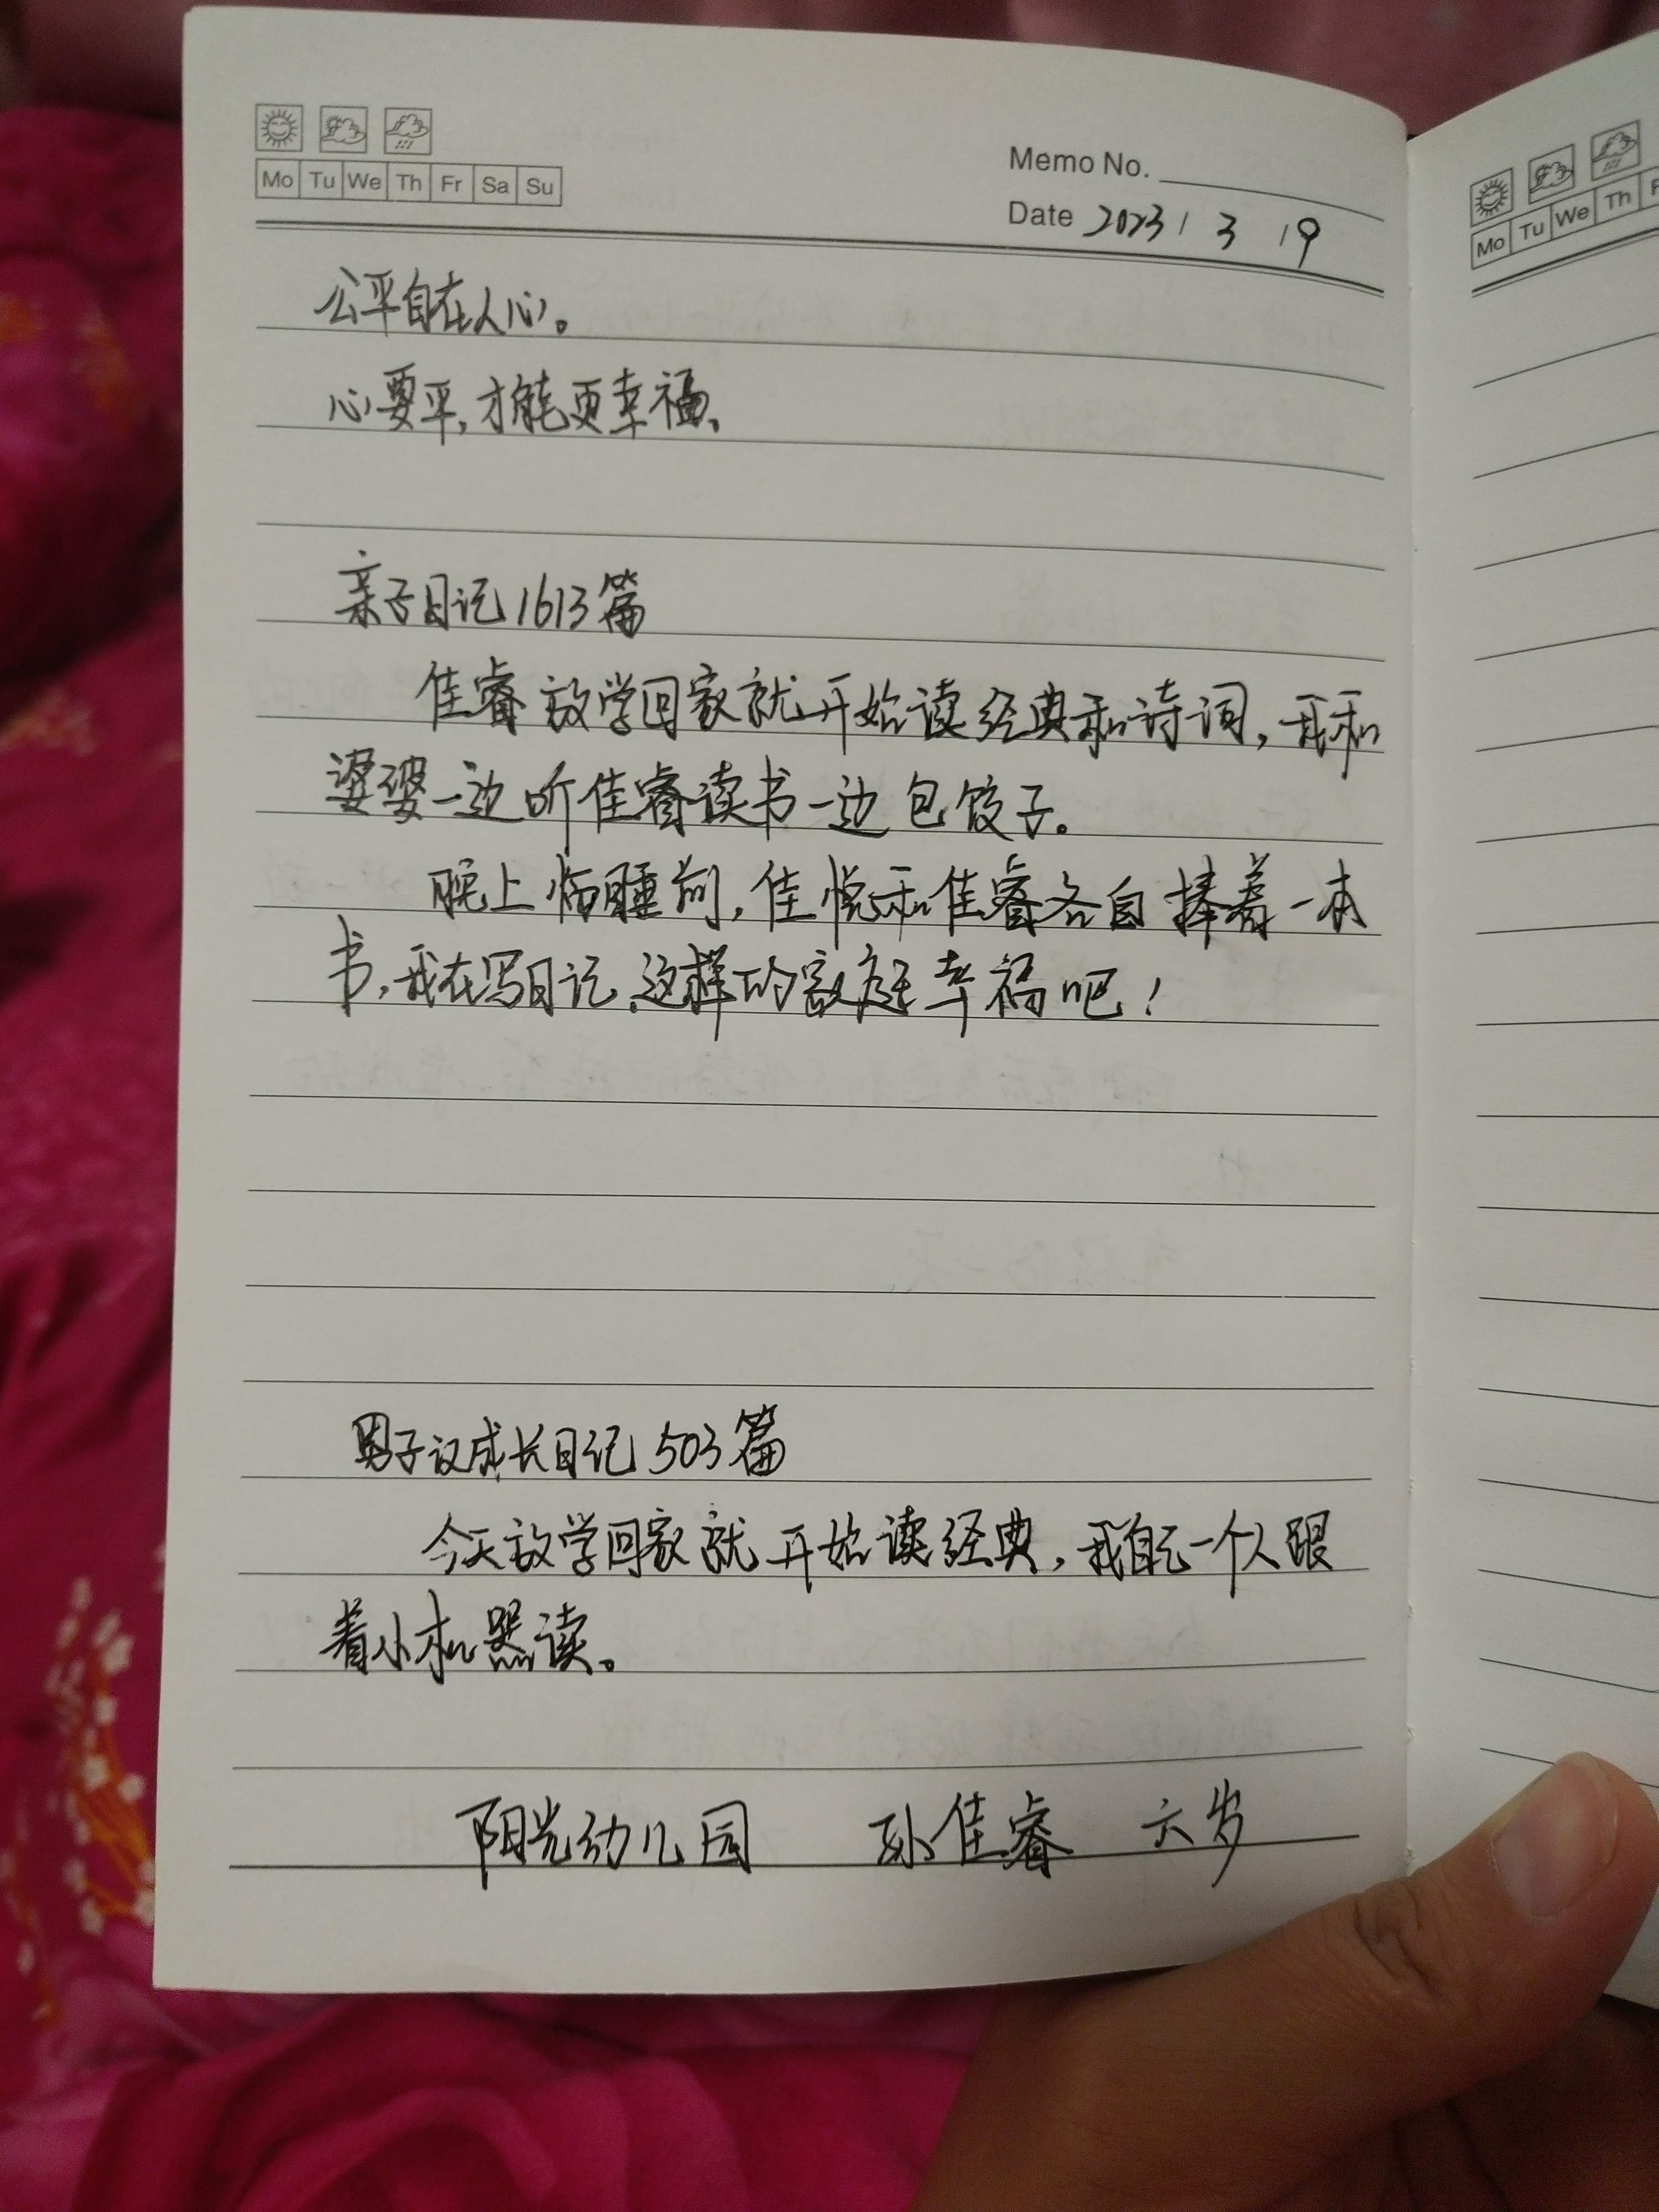 Mo Tu We Th Fr Sa Su
Memo No.
Date 2023 / 3 / 9
公平自在人心。
心要平,才能更幸福。
亲子日记1613篇
佳睿放学回家就开始读经典和诗词,我和
婆婆一边听佳睿读书一边包饺子。
晚上临睡前,佳悦和佳睿各自捧着一本
书,我在写日记,这样的家庭幸福吧!
男子汉成长日记503篇
今天放学回家就开始读经典,我自己一个人跟
着小机器读。
阳光幼儿园 孙佳睿 六岁
Mo Tu We Th